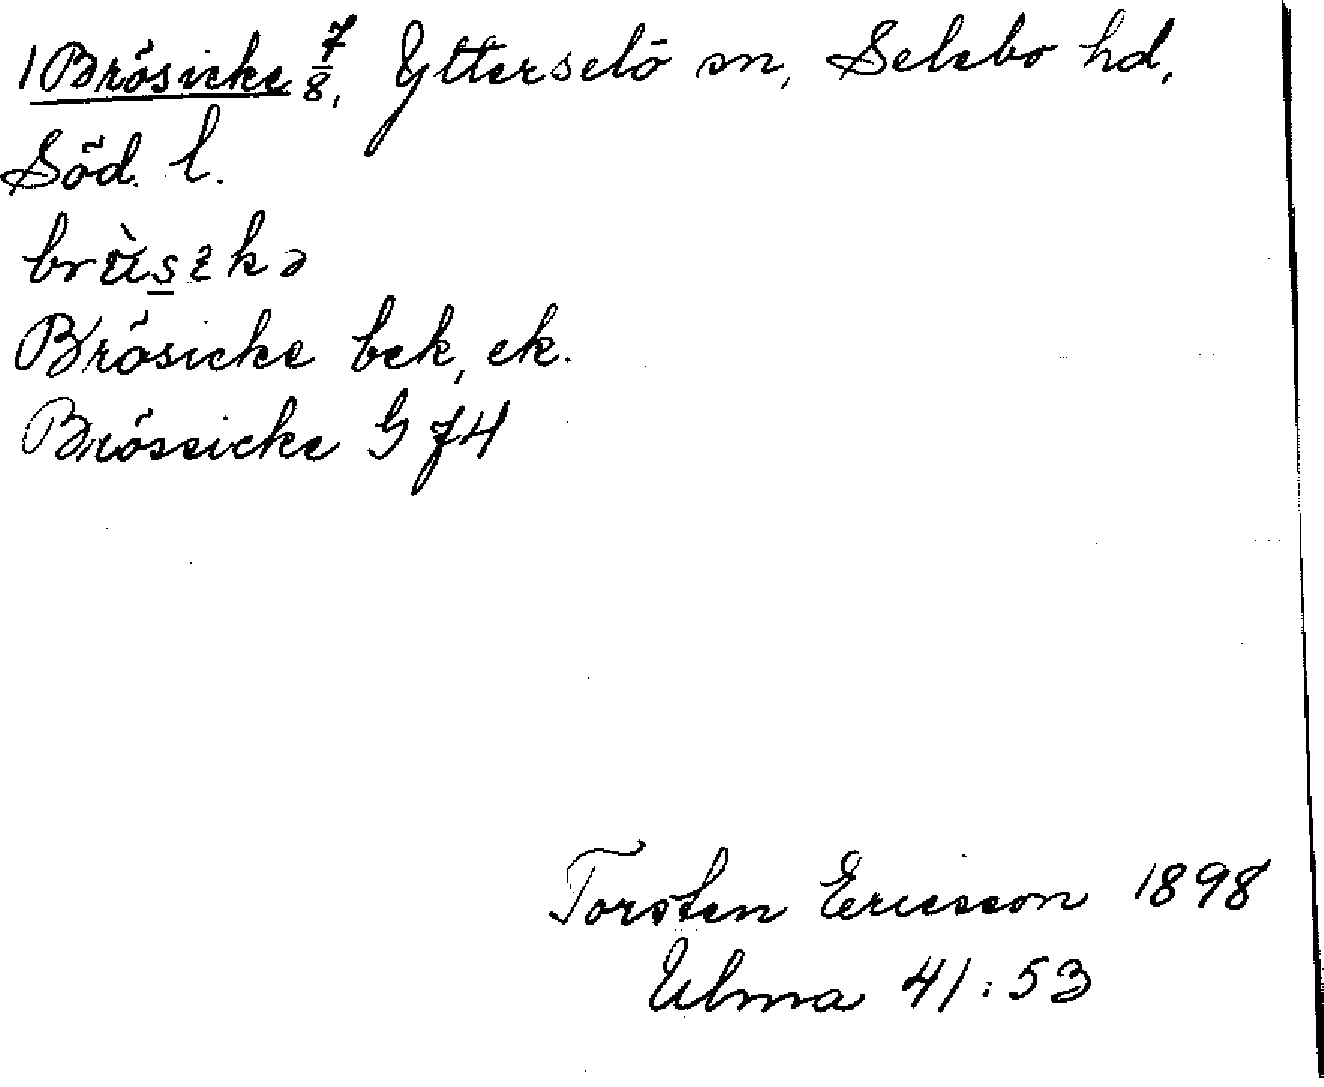 1 Brösicke 7/8, Ytterselö sn, Selebo hd,
Söd. l.
Brösicke bek, ek.
Brössicke G 74
Torsten Ericsson 1898
Ulma 41:53